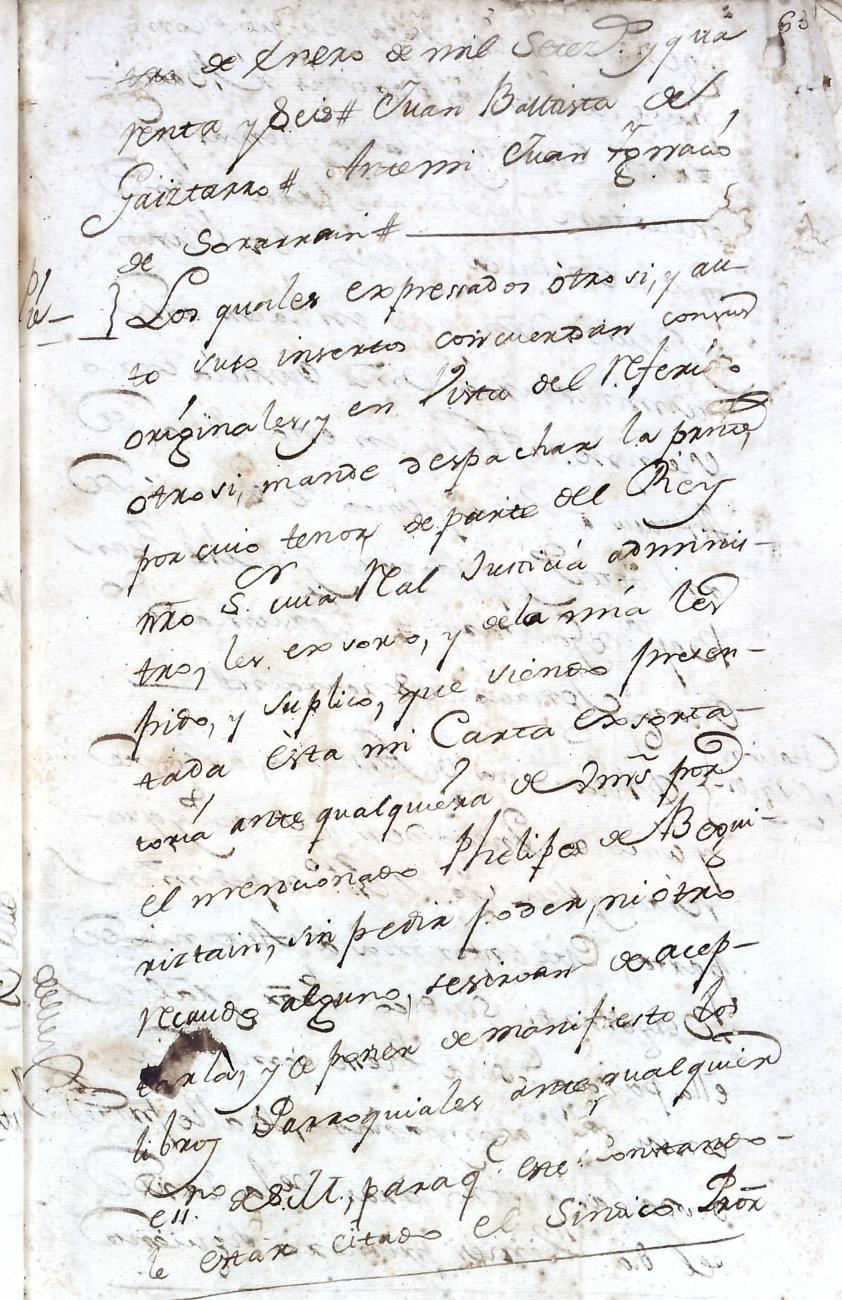 63
de Enero de mil Setez.s y qua
renta y Seis # Juan Battista de
Gaiztarro # Antemi Juan Ygnacio
de Sorarrain #
Los quales expressados òtrosi, y au-
to suso insertos concuerdan con sus
originales, y en Vista del referido
òtrosi, mande despachar la press.te
por cuio tenor de parte del Rey
nrô S.r cuia Real Justicia adminis-
tro, les exsorto, y dela mia les
pido, y suplico, que siendo presen-
tada èsta mi Carta exsorta-
toria ante qualquiera de Vmrs por
el mencionado Phelipe de Bequi-
riztain, sin pedir poder, ni òtro
recaudo alguno, sesirvan de acep-
tarla, y de poner de manifiesto los
libros Parroquiales ante qualquier
no de S.M., paraq.e este Constando-
le estar citado el Sindico Pror̂